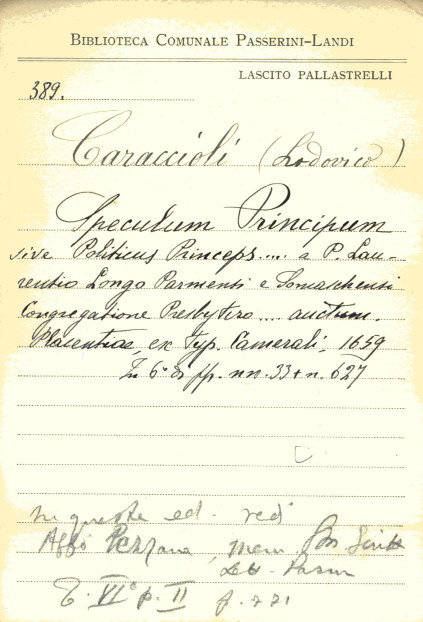 BIBLIOTECA COMUNALE PASSERINI-LANDI
LASCITO PALLASTRELLI
389.
Caraccioli (Lodovico)
Speculum Principum
sive Politicus Princeps.... a P. Lau-
rentio Longo Parmensi e Somaschensi
Congregatione Presbytero .... auctum.
Placentiae, ex Typ. Camerali, 1659
In 6° di pp. nn. 33 + n. 627
Su questa ed. vedi
Affò Pezzana, Mem
T. VI° p. II f. 221